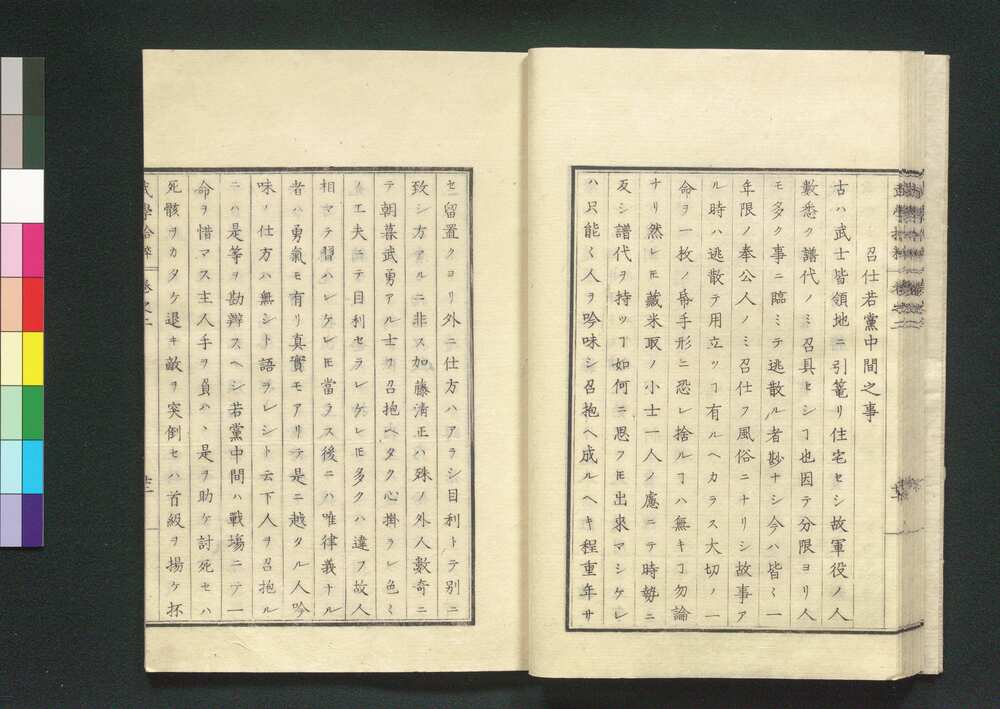 召仕若黨中間之事
古ハ武士皆領地ニ引篭リ住宅セシ故軍役ノ人
數悉ク譜代ノミ召具セシヿ也因テ分限ヨリ人
モ多ク事ニ臨ミテ逃散ル者尠ナシ今ハ皆〻一
年限ノ奉公人ノミ召仕フ風俗ニナリシ故事ア
ル時ハ逃散テ用立ツヿ有ルヘカラス大切ノ一
命ヲ一枚ノ帋手形ニ恐レ捨ルヿハ無キヿ勿論
ナリ然レ𪜈藏米取ノ小士一人ノ慮ニテ時勢ニ
反シ譜代ヲ持ツヿ如何ニ思フ𪜈出來マシケレ
ハ只能〻人ヲ吟味シ召抱ヘ成ルヘキ程重年サ
セ留置クヨリ外ニ仕方ハアラシ目利トテ別ニ
致シ方アルニ非ス加藤淸正ハ殊ノ外人數奇ニ
テ朝暮武勇アル士ヲ召抱ヘタク心掛ラレ色〻
工夫ニテ目利セラレケレ𪜈多クハ違フ故人
相マテ習ハレケレ𪜈當ラス後ニハ唯律義ナル
者ハ勇氣モ有リ真實モアリテ是ニ越タル人吟
味ノ仕方ハ無シト語ラレシト云下人ヲ召抱ル
ニハ是等ヲ勘辨スヘシ若黨中間ハ戰塲ニテ一
命ヲ惜マス主人手ヲ負ハヽ是ヲ助ケ討死セハ
死骸ヲカタケ退キ敵ヲ突倒セハ首級ヲ揚ケ抔
武學拾粹 卷之二